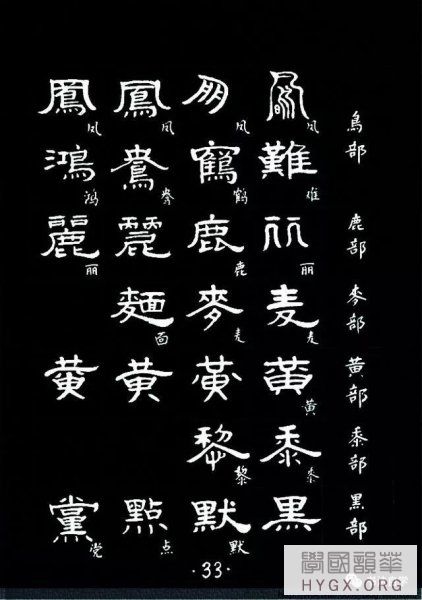 鳥部 鹿部 麥部 黄部 黍部 黑部
凤 難 难 丽 麦 麦 黄 黄 黍 黍 黑
朋 凤 鶴 鹤 鹿 鹿 麥 麦 黄 黎 黎 默 默
鳳 凤 麗 丽 麵 面 黄 點 点
鳳 凤 鴻 鸿 麗 丽 黄 黨 党
·33·
學國韻華
HYGX.ORG